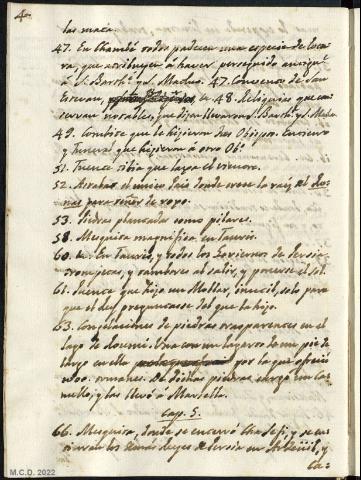 4
las mata.
47. En Chambé todos padecen una especie de locu-
ra, que atribuyen à haver perseguido antigu.te
à S.n Barth.e y S. Matheo. 47. Convento de San
Estevan, en 48. Reliquias que con-
servan notables, que dizen llevaron S. Barth.e y S. Matheo
49. Combite que le hizieron dos Obispos. Entierro
y Funeral que hizieron à otro Ob.o
51. Fuente tibia que tapa el
52. Arrabat el unico Pais donde crece la raiz
para teñir de roxo.
53. Piedras plantadas como pilares.
58. Mesquita magnifica en Tauris.
60. En Tauris, y todos los Goviernos de Persia
trompetas, y tambores al salir, y ponerse el Sol.
61. Fuente que hizo un Mollar, inutil, solo para
que el Rey preguntasse del que la hizo.
63. Congelaciones de piedras trasparentes en el
lago de Roumi. Una con un lagarto de un pie de
largo en ella por la que ofreció
tomanes. De dichas piedras cargó un Ca-
mello, y las llevó à Marsella.
Cap. 5.
66. Mesquita, donde se enterró Cha Sefi, y se en-
tierran los demás Reyes de Persia en Ardeüil, y
la=
M.C.D. 2022